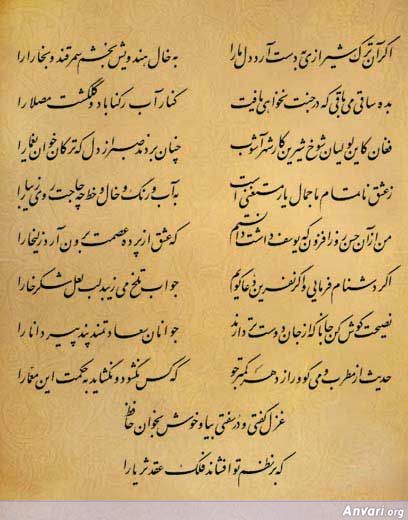 اگر آن ترک شیرازی به دست آرد دل ما را به خال هندویش بخشم سمرقند و بخارا را
بده ساقی می باقی که در جنت نخواهی یافت کنار آب رکناباد و گلگشت مصلا را
فغان کاین لولیان شوخ شیرین کار شهرآشوب چنان بردند صبر از دل که ترکان خوان یغما را
ز عشق ناتمام ما جمال یار مستغنی است به آب و رنگ و خال و خط چه حاجت روی زیبا را
من از آن حسن روزافزون که یوسف داشت دانستم که عشق از پرده عصمت برون آرد زلیخا را
اگر دشنام فرمایی و گر نفرین دعا گویم جواب تلخ می زیبد لب لعل شکرخا را
نصیحت گوش کن جانا که از جان دوست تر دارند جوانان سعادتمند پند پیر دانا را
حدیث از مطرب و می گو و راز دهر کمتر جو که کس نگشود و نگشاید به حکمت این معما را
غزل گفتی و در سفتی بیا و خوش بخوان حافظ
که بر نظم تو افشاند فلک عقد ثریا را
Anvari.org